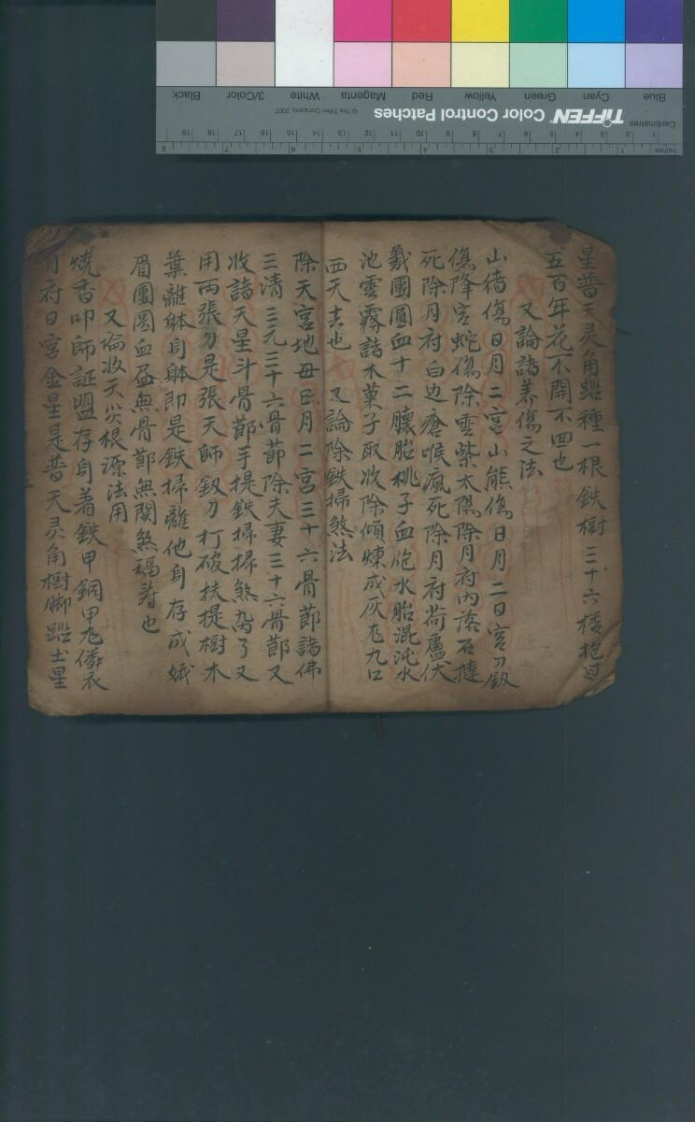 星普天灵角跕種一根鉄樹三十六樣抱过
五百年花不開不回也
又論諸蓦傷之法
山猪傷日月二宮山熊傷日月二日宮刀釼
傷降宮蛇傷除雲紫太陽除月府內落石撞
死除月府白边瘡喉瘋死除月府荷盧伏
羲團圓血十二臟胎桃子血胞水胎混沌水
池雲霧諸木菓子取收除傾煉成灰飛九口
西天去也 又論除鉄掃煞法
除天宮地母日月二宮三十六骨節諸佛
三清三元三十六骨節除夫妻三十六骨節又
收諸天星斗骨節手提鉄掃掃煞架了又
用两張刀是張天師釼刀打破扶提樹木
葉離躰身躰即是鉄掃離他身存成娥
眉團圓血盈無骨節無関煞福壽也
又論收天災根源法用
燒香叩師証盟存身著鉄甲銅甲龙僯衣
月府日宮金星是普天灵角樹脚跕土星
Inches
Centimetres
TIFFEN Color Control Patches
© The Tiffen Company, 2007
Blue Cyan Green Yellow Red Magenta White 3/Color Black